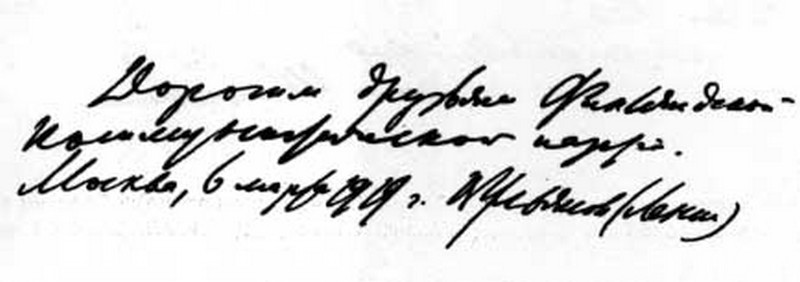 Дорогим друзьям Финляндской
Коммунистической партии.
Москва, 6 марта 1919 г. В Ульянов (Ленин)